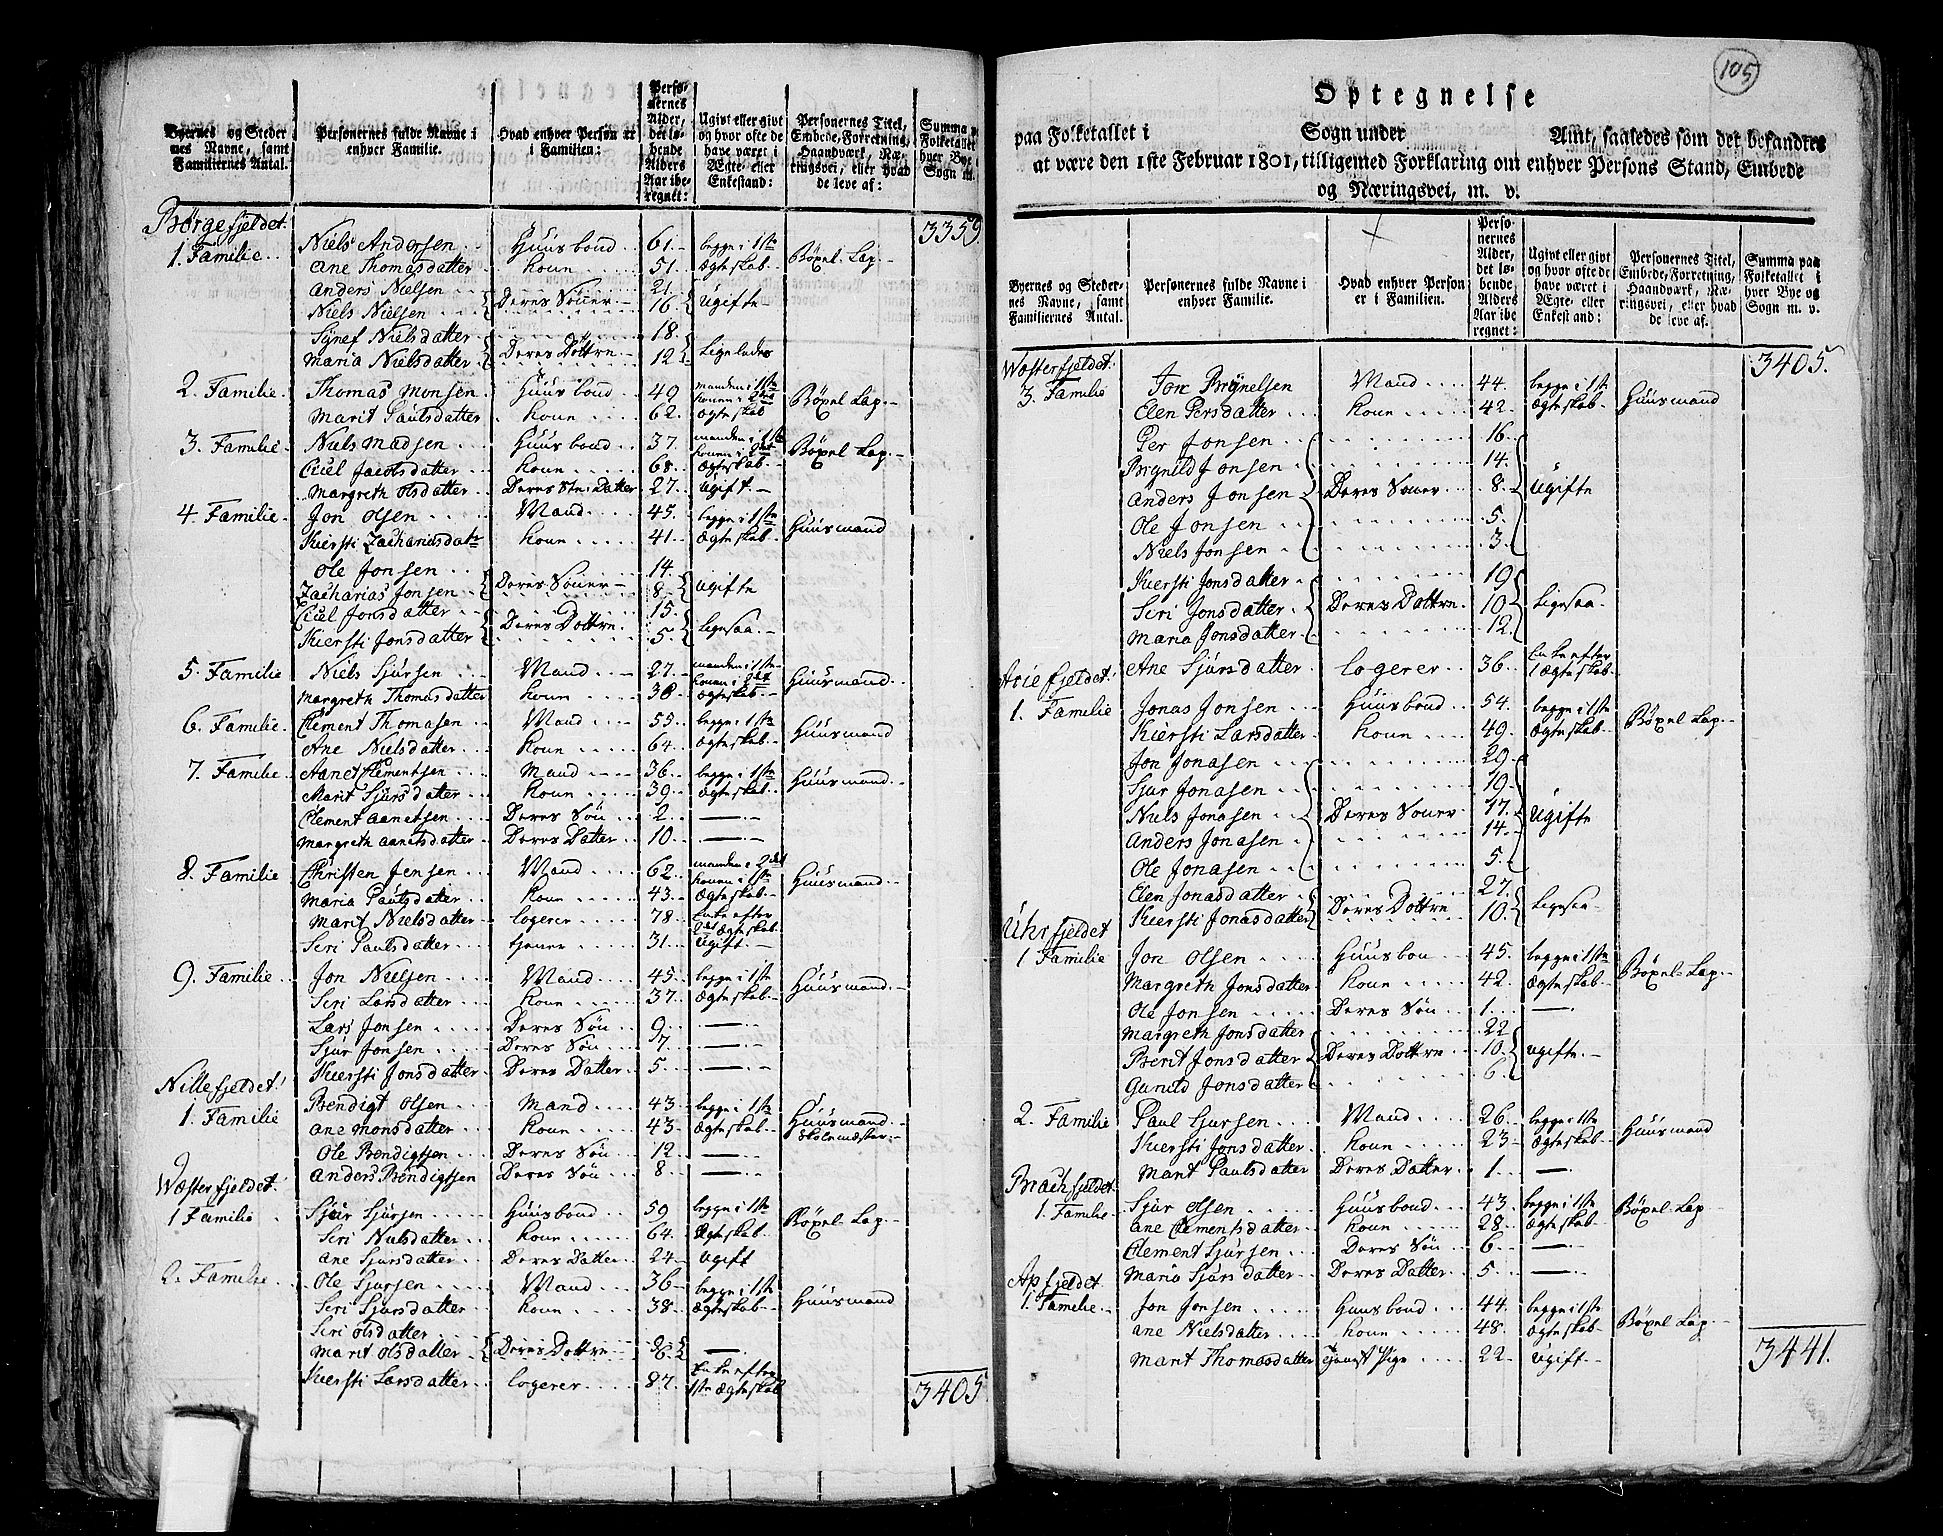 Byernes og Steder
nes Navne, samt
Familiernes Antal.
Personernes fulde Navne i
enhver Familie.
Hvad enhver Person er
i Familien:
Perso-
nernes
Alder,
det lø-
bende
Alders
Aar ibe-
regnet:
Ugivt eller givt
og hvor ofte de
have været i
Ægte- eller
Enkestand:
Personernes Titel,
Embede, Forretning,
Haandværk, Næ-
ringsvei, eller hvad
de leve af:
Summa
Folketallet
hver Bye
Sogn m.
Børgefjeldet. 3359
1. Familie Niels Andersen Huusbond 61. begge i 1ste Bøxel Lap.
Ane Thomasdatter kone 51. Ægteskab
Anders Nielsen 21.
Niels Nielsen Deres Sönner 16 Ugifte
Synef Nielsdatter 18.
Maria Nielsdatter Deres Döttre 12 Ligeledes
2. Familie Thomas Monsen Huusbond 49 manden i 1ste Bøxel Lap.
konen i 2det
Marit Paulsdatter kone 62. Ægteskab
3. Familie Niels Madsen Huusbond 37. manden i 1ste Bøxel Lap.
konen i 2det
Cicel Jacobsdatter kone 68. Ægteskab.
Margreth Olsdatter Deres Ste: Datter 27. Ugift.
4. Familie Jon Olsen Mand 45. begge i 1ste Huusmand
Kiersti Zachariasdatr kone 41. Ægteskab.
Ole Jonsen 14.
Zacharias Jonsen Deres Sönner 8. Ugifte
Cicel Jonsdatter 15
Kiersti Jonsdatter Deres Döttre 5. Ligesaa.
5. Familie Niels Sjursen Mand 27. manden i 1ste Huusmand
konen i 2det
Margreth Thomasdatter kone 38 Ægteskab
6. Familie Clement Thomasen Mand 55. begge i 1ste Huusmand
Ane Nielsdatter kone 64. Ægteskab.
7. Familie Aanet Clementsen Mand 36. begge i 1ste Huusmand.
Marit Sjursdatter kone 39. Ægteskab.
Clement Aanetsen Deres Sön 2. —
Margreth Aanetsdatter Deres Datter 10. —
8. Familie Christen Jensen Mand 62. manden i 2det Huusmand.
konen i 1ste
Maria Paulsdatter kone 43. Ægteskab
Marit Nielsdatter logerer 78. Enke efter
2det Ægteskab.
Siri Paulsdatter tjener 31. Ugift.
9. Familie Jon Nielsen Mand 45. begge i 1ste Huusmand.
Siri Larsdatter kone 37. Ægteskab.
Lars Jonsen Deres Sön 9. —
Sjur Jonsen Deres Sön 7. —
Kiersti Jonsdatter Deres Datter 5. —
Nillefjeldet.
1. Familie Bendigt Olsen Mand 43. begge i 1ste Huusmand
Ane Monsdatter kone 43. Ægteskab Skolemæster.
Ole Bendigtsen Deres Sön 12 —
Anders Bendigtsen Deres Sön 8. —
Wæsterfjeldet.
1 Familie Sjur Sjursen Huusbond 59 begge i 1ste Bøxel Lap.
Siri Nielsdatter kone 64. Ægteskab.
Ane Sjursdatter Deres Datter 24. Ugift
2. Familie Ole Sjursen Mand 36 begge i 1ste Huusmand
Siri Sjursdatter kone 38. Ægteskab
Siri Olsdatter
Marit Olsdatter Deres Döttre —
Kiersti Larsdatter logerer 87. Enke efter
1ste Ægteskab
3405
105
Optegnelse
paa Folketallet i Sogn under Amt, saaledes som det befandtes
at være den 1ste Februar 1801, tilligemed Forklaring om enhver Persons Stand, Embede
og Næringsvei, m. v.
Byernes og Steder-
nes Navne, samt
Familiernes Antal.
Personernes fulde Navne i
enhver Familie.
Hvad enhver Person
er i Familien.
Perso-
nernes
Alder,
det lø-
bende
Alders
Aar ibe-
regnet:
Ugivt eller givt
og hvor ofte de
have været i
Ægte- eller
Enkestand:
Personernes Titel,
Embede, Forretning,
Haandværk, Næ-
ringsvei, eller hvad
de leve af.
Summa paa
Folketallet i
hver Bye og
Sogn m. v.
Wæsterfjeldet. 3405.
3. Familie Jon Brynelsen Mand 44. begge i 1ste Huusmand
Elen Persdatter kone 42. Ægteskab.
Per Jonsen 16
Brynild Jonsen 14.
Anders Jonsen Deres Sönner 8. Ugifte
Ole Jonsen 5.
Niels Jonsen 3.
Kiersti Jonsdatter 19
Siri Jonsdatter Deres Döttre 10 Ligesaa.
Maria Jonsdatter 12.
Ane Sjursdatter logerer 36. Enke efter
1 Ægteskab.
Ariefjeldet.
1. Familie Jonas Jonsen Huusbond 54. begge i 1ste Bøxel Lap.
Kiersti Larsdatter kone 49. Ægteskab.
Jon Jonasen 29.
Sjur Jonasen 19.
Niels Jonasen Deres Sönner 17. Ugifte
Anders Jonasen 14.
Ole Jonasen 5.
Elen Jonasdatter 27.
Kiersti Jonasdatter Deres Döttre 10. Ligesaa
Uhrfjeldet
1 Familie Jon Olsen Huusbon 45. begge i 1ste Bøxel Lap.
Margreth Jonsdatter kone 42. Ægteskab.
Ole Jonsen Deres Sön 1. —
Margreth Jonsdatter 22
Berit Jonsdatter Deres Döttre 10. ugifte.
Gunild Jonsdatter 6.
2. Familie Paul Sjursen Mand 26. begge i 1ste Huusmand
Kiersti Jonsdatter kone 23. Ægteskab.
Marit Paulsdatter Deres Datter 1. —
Brachfjeldet.
1. Familie Sjur Olsen Huusbond 43. begge i 1ste Bøxel Lap
Ane Clementsdatter kone 28. Ægteskab.
Clement Sjursen Deres Sön 6. —
Maria Sjursdatter Deres Datter 5. —
Apfjeldet.
1. Familie Jon Jonsen Huusbond 44. begge i 1ste Bøxel Lap.
Ane Nielsdatter kone 48. Ægteskab.
Marit Thomasdatter Tjenest Pige 22. Ugift.
3441.